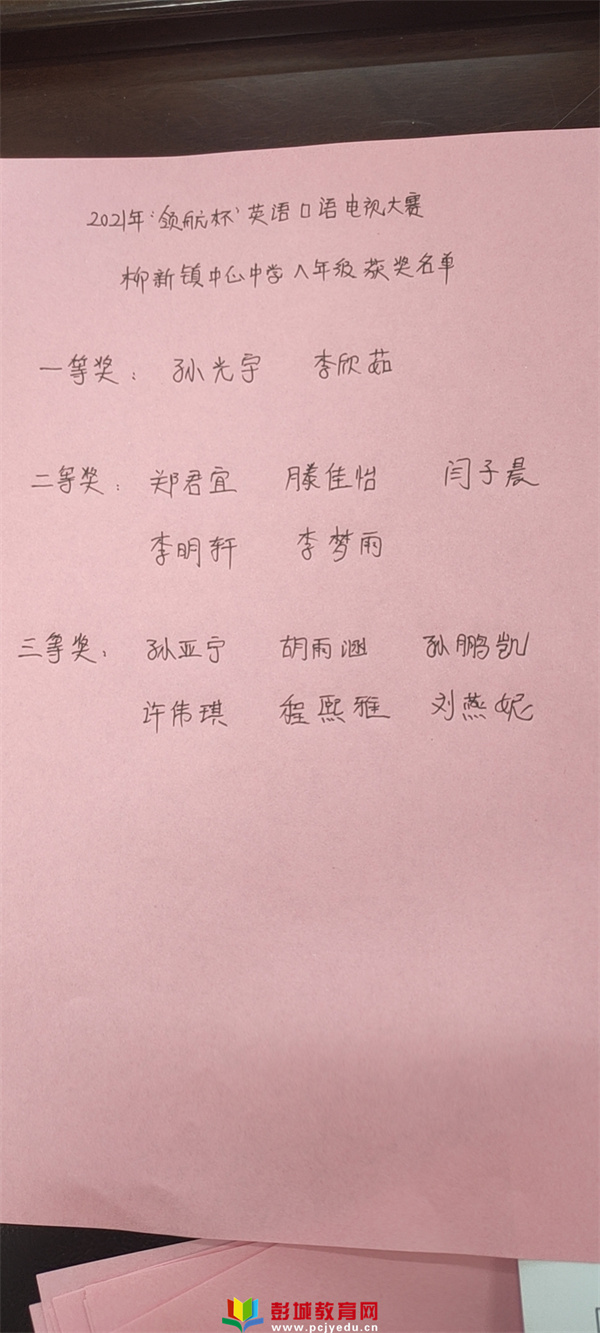 2021年“领航杯”英语口语电视大赛
柳新镇中心中学八年级获奖名单
一等奖： 孙光宇 李欣茹
二等奖： 郑君宜 滕佳怡 闫子晨
李明轩 李梦雨
三等奖： 孙亚宁 胡雨涵 孙鹏凯
许伟琪 程熙雅 刘燕妮
彭城教育网
www.pcjyedu.cn